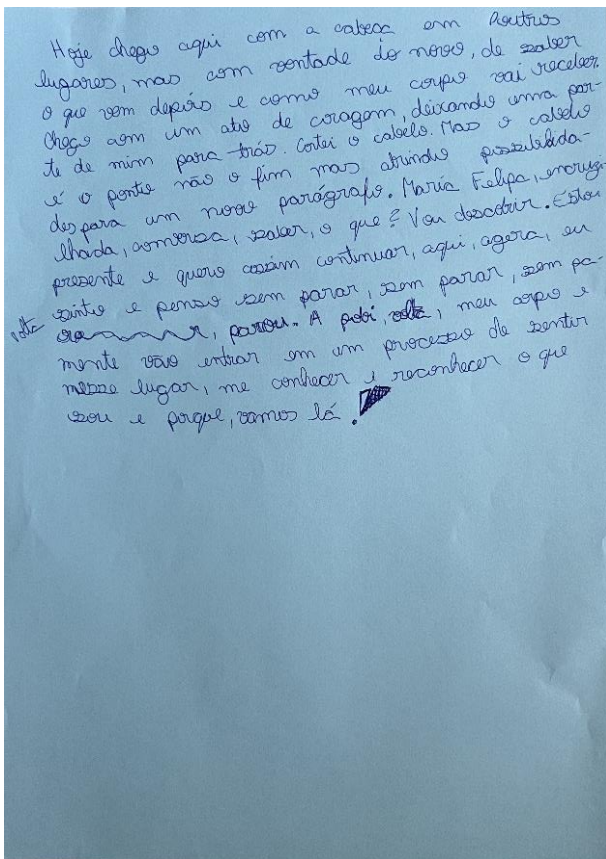 Hoje chego aqui com a cabeça em outros
lugares, mas com vontade do novo, de saber
o que vem depois e como meu corpo vai receber
chego com um ato de coragem, deixando uma par-
te de mim para trás. Cortei o cabelo. Mas o cabelo
é o ponto não o fim mas abrindo possibilida-
des para um novo parágrafo. Maria Felipa, encruzi
lhada, conversa, saber, o que? Vou descobrir. Estou
presente e quero assim continuar, aqui, agora, eu
sinto e penso sem parar, sem parar, sem pa-
parou. A meu corpo e
mente vão entrar em um processo de sentir
nesse lugar, me conhecer e reconhecer o que
sou e porque, vamos lá.